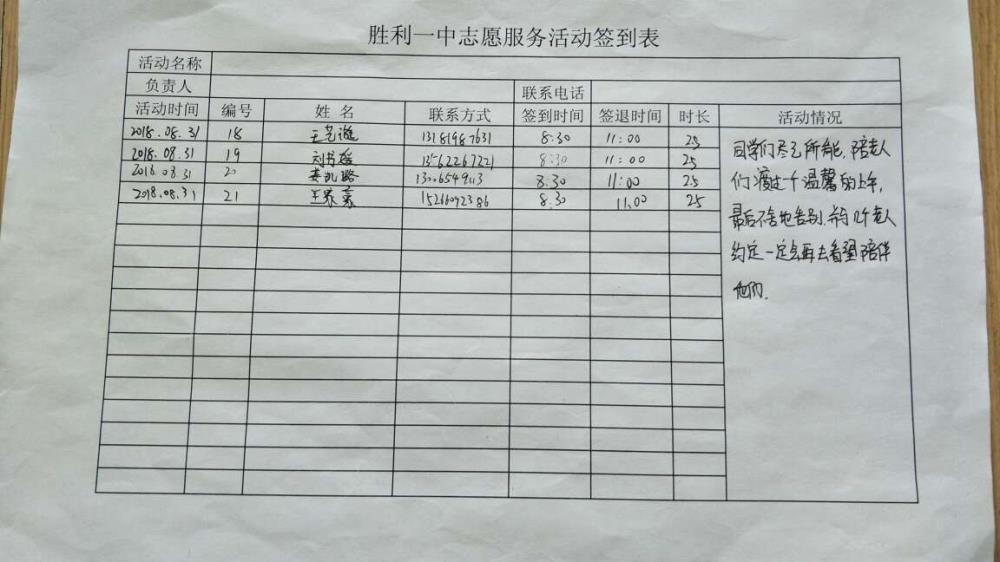 胜利一中志愿服务活动签到表
活动名称
负责人 联系电话
活动时间 编号 姓名 联系方式 签到时间 签退时间 时长 活动情况
2018.08.31 18 13181987631 8:30 11:00 25
2018.08.31 19 13562267221 8:30 11:00 25
2018.08.31 20 8:30 11:00 25
2018.08.31 21 15266092386 8:30 11:00 25
同学们尽己所能,陪老人
们渡过一个温馨的上午,
最后不舍地告别,并与几个老人
约定一定会再去看望陪伴
他们.